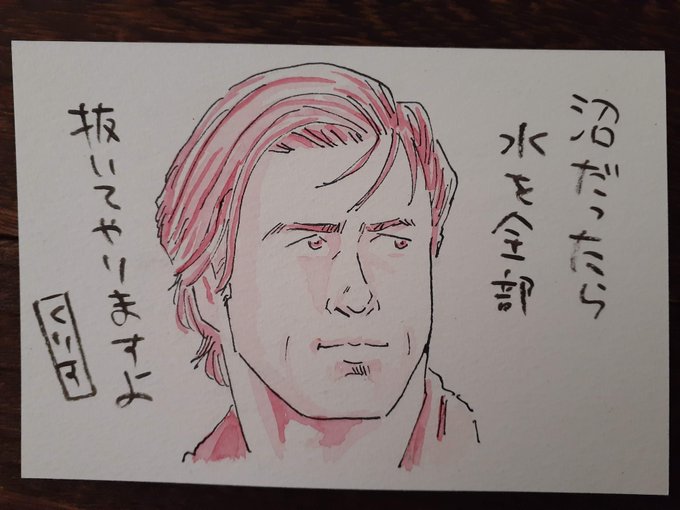 沼だったら
水を全部
抜いてやりますよ
くりす